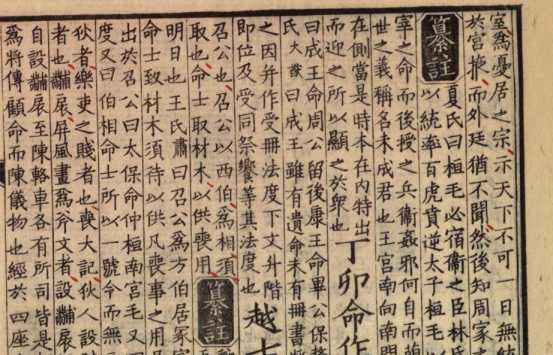 室爲憂居之宗示天下不可一日無統
於宮掖而外廷猶不聞然後知周家
纂註
夏氏曰桓毛必宿衛之臣林氏
以統率百虎賁逆太子桓毛以
宰之命而後授之兵衛姦邪何自而萌
世之義稱名未成君也王宮南向南門
在側當是時本在內特出
而迎之所以顯之於衆也
丁卯命作
曰成王命周公留後康王命畢公保釐
氏大猷曰成王雖有遺命未有冊書
之因并作受冊法度下文升階
即位及受同祭饗等其法度也
越七
召公也召公以西伯爲相須
取也命士取材木以供喪用
纂註
明日也王氏肅曰召公爲方伯居冢宰
命士致材木須待以供凡喪事之用
出於召公曰太保命仲桓南宮毛又曰
度又曰伯相命士所以一號令而無
狄者樂吏之賤者也喪大記狄人設
者也黼扆屏風畫爲斧文者設黼扆
自設黼扆至陳輅車各有所司皆是
爲將傳顧命而陳儀物也經於四座